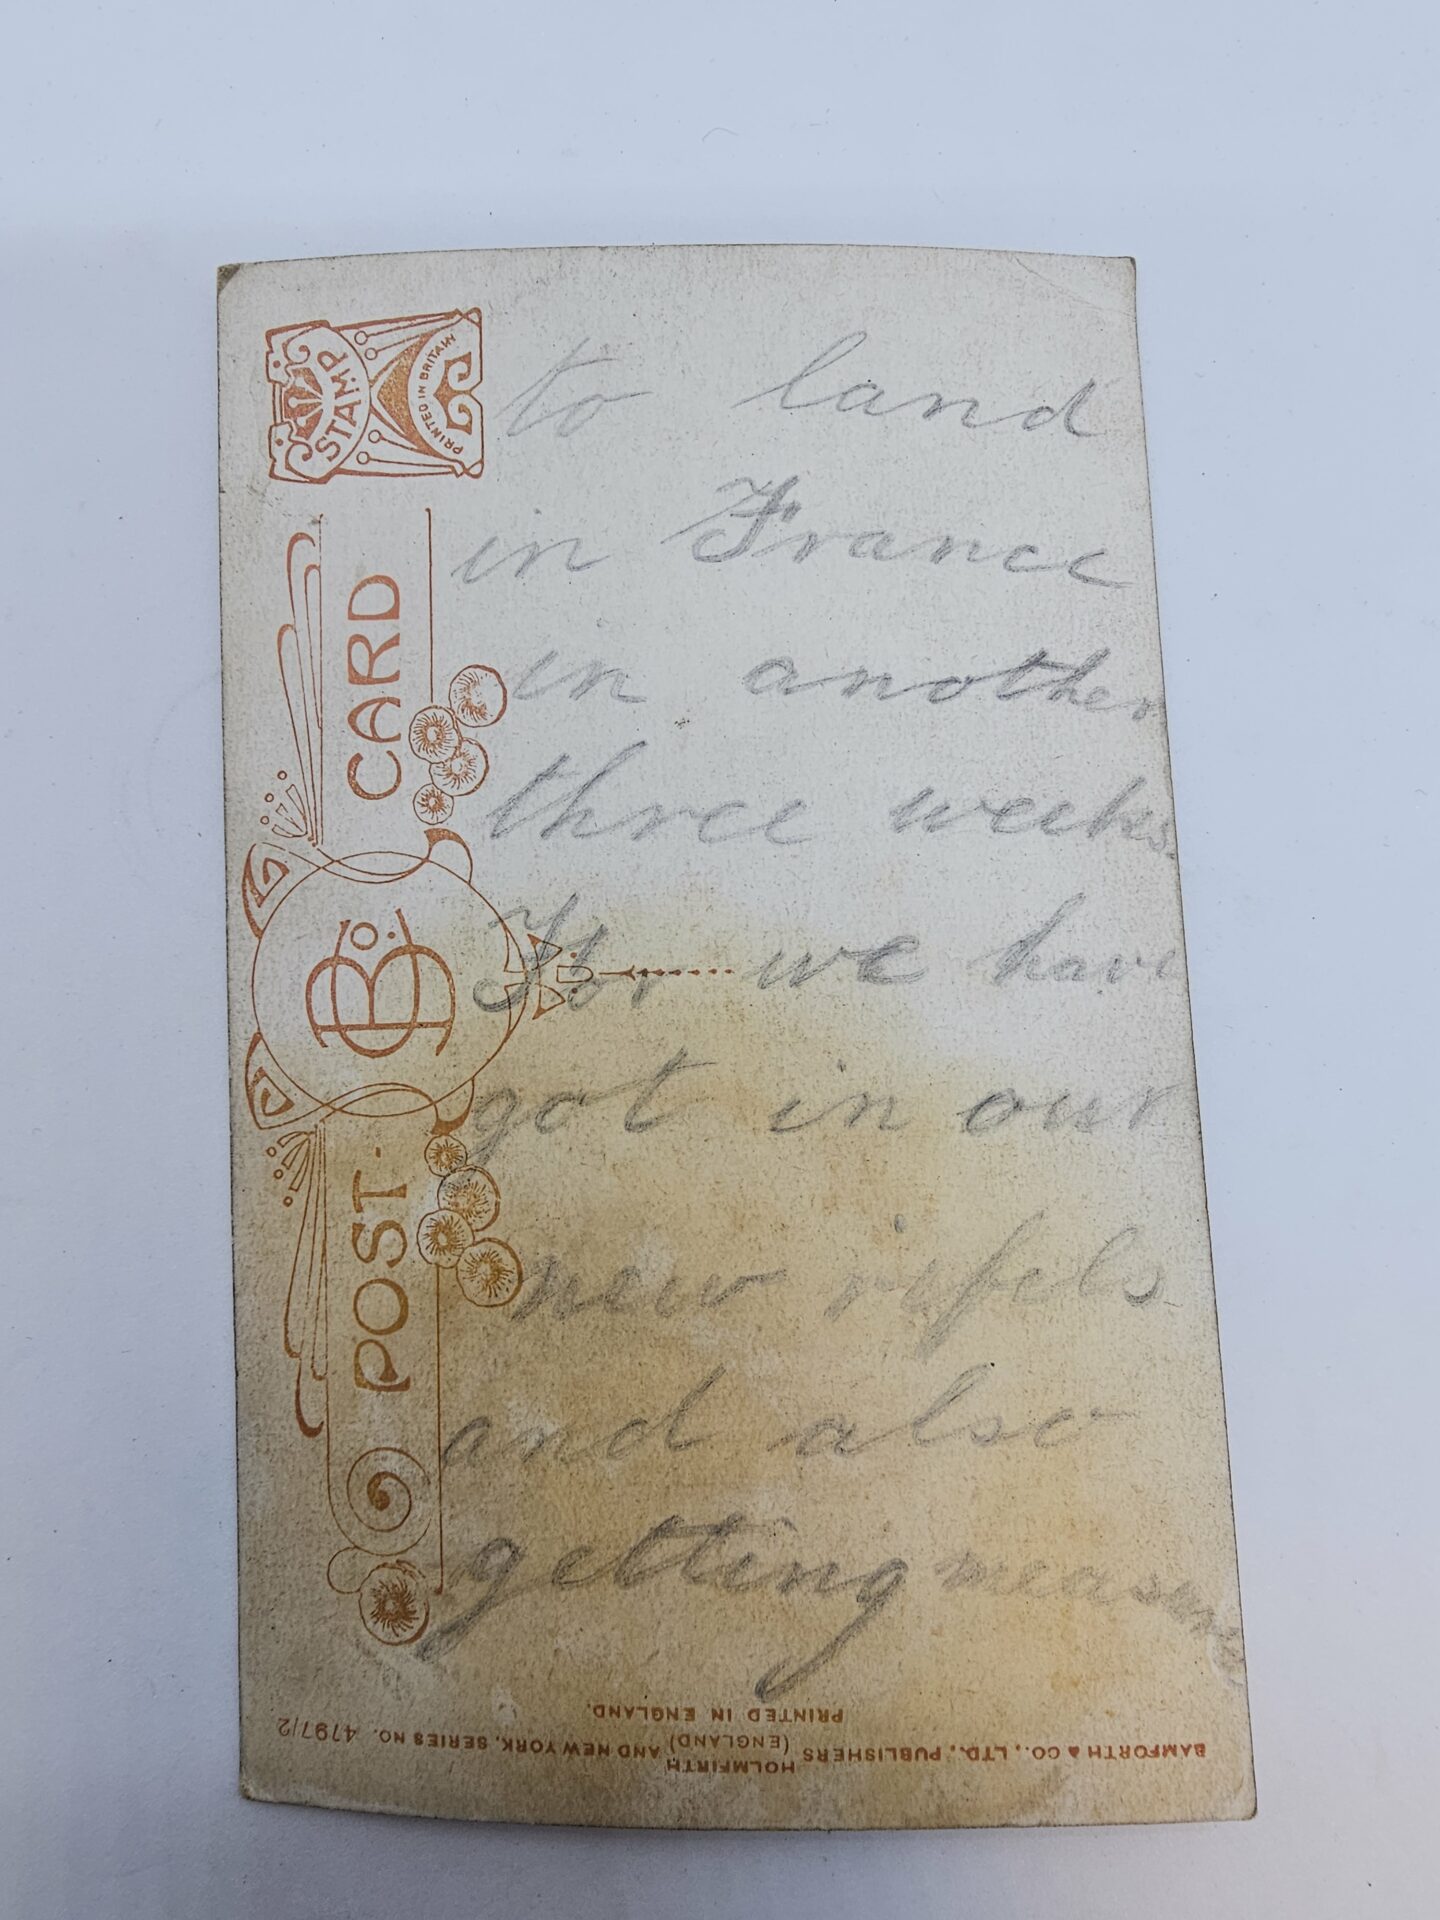 to land
in France
in another
three weeks.
For we have
got in our
new rifels
and also
getting measure
STAMP
PRINTED IN BRITAIN
POST CARD
B & Co.
BAMFORTH & CO., LTD., PUBLISHERS HOLMFIRTH (ENGLAND) AND NEW YORK. SERIES NO. 4797/2
PRINTED IN ENGLAND.